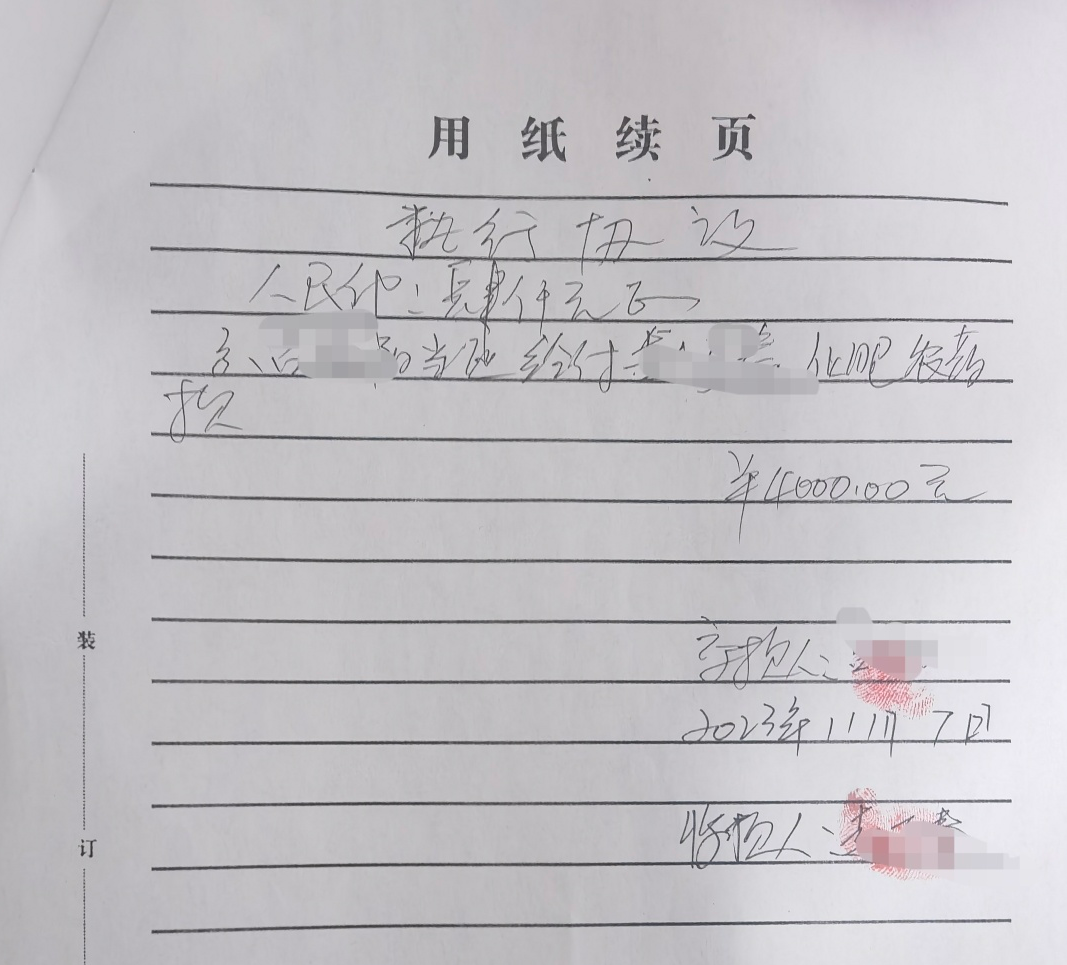 用纸续页
执行协议
人民币：肆仟元正
当面给付 化肥农药
款
￥4000.00元
交款人：
2023年11月7日
收款人：
装
订